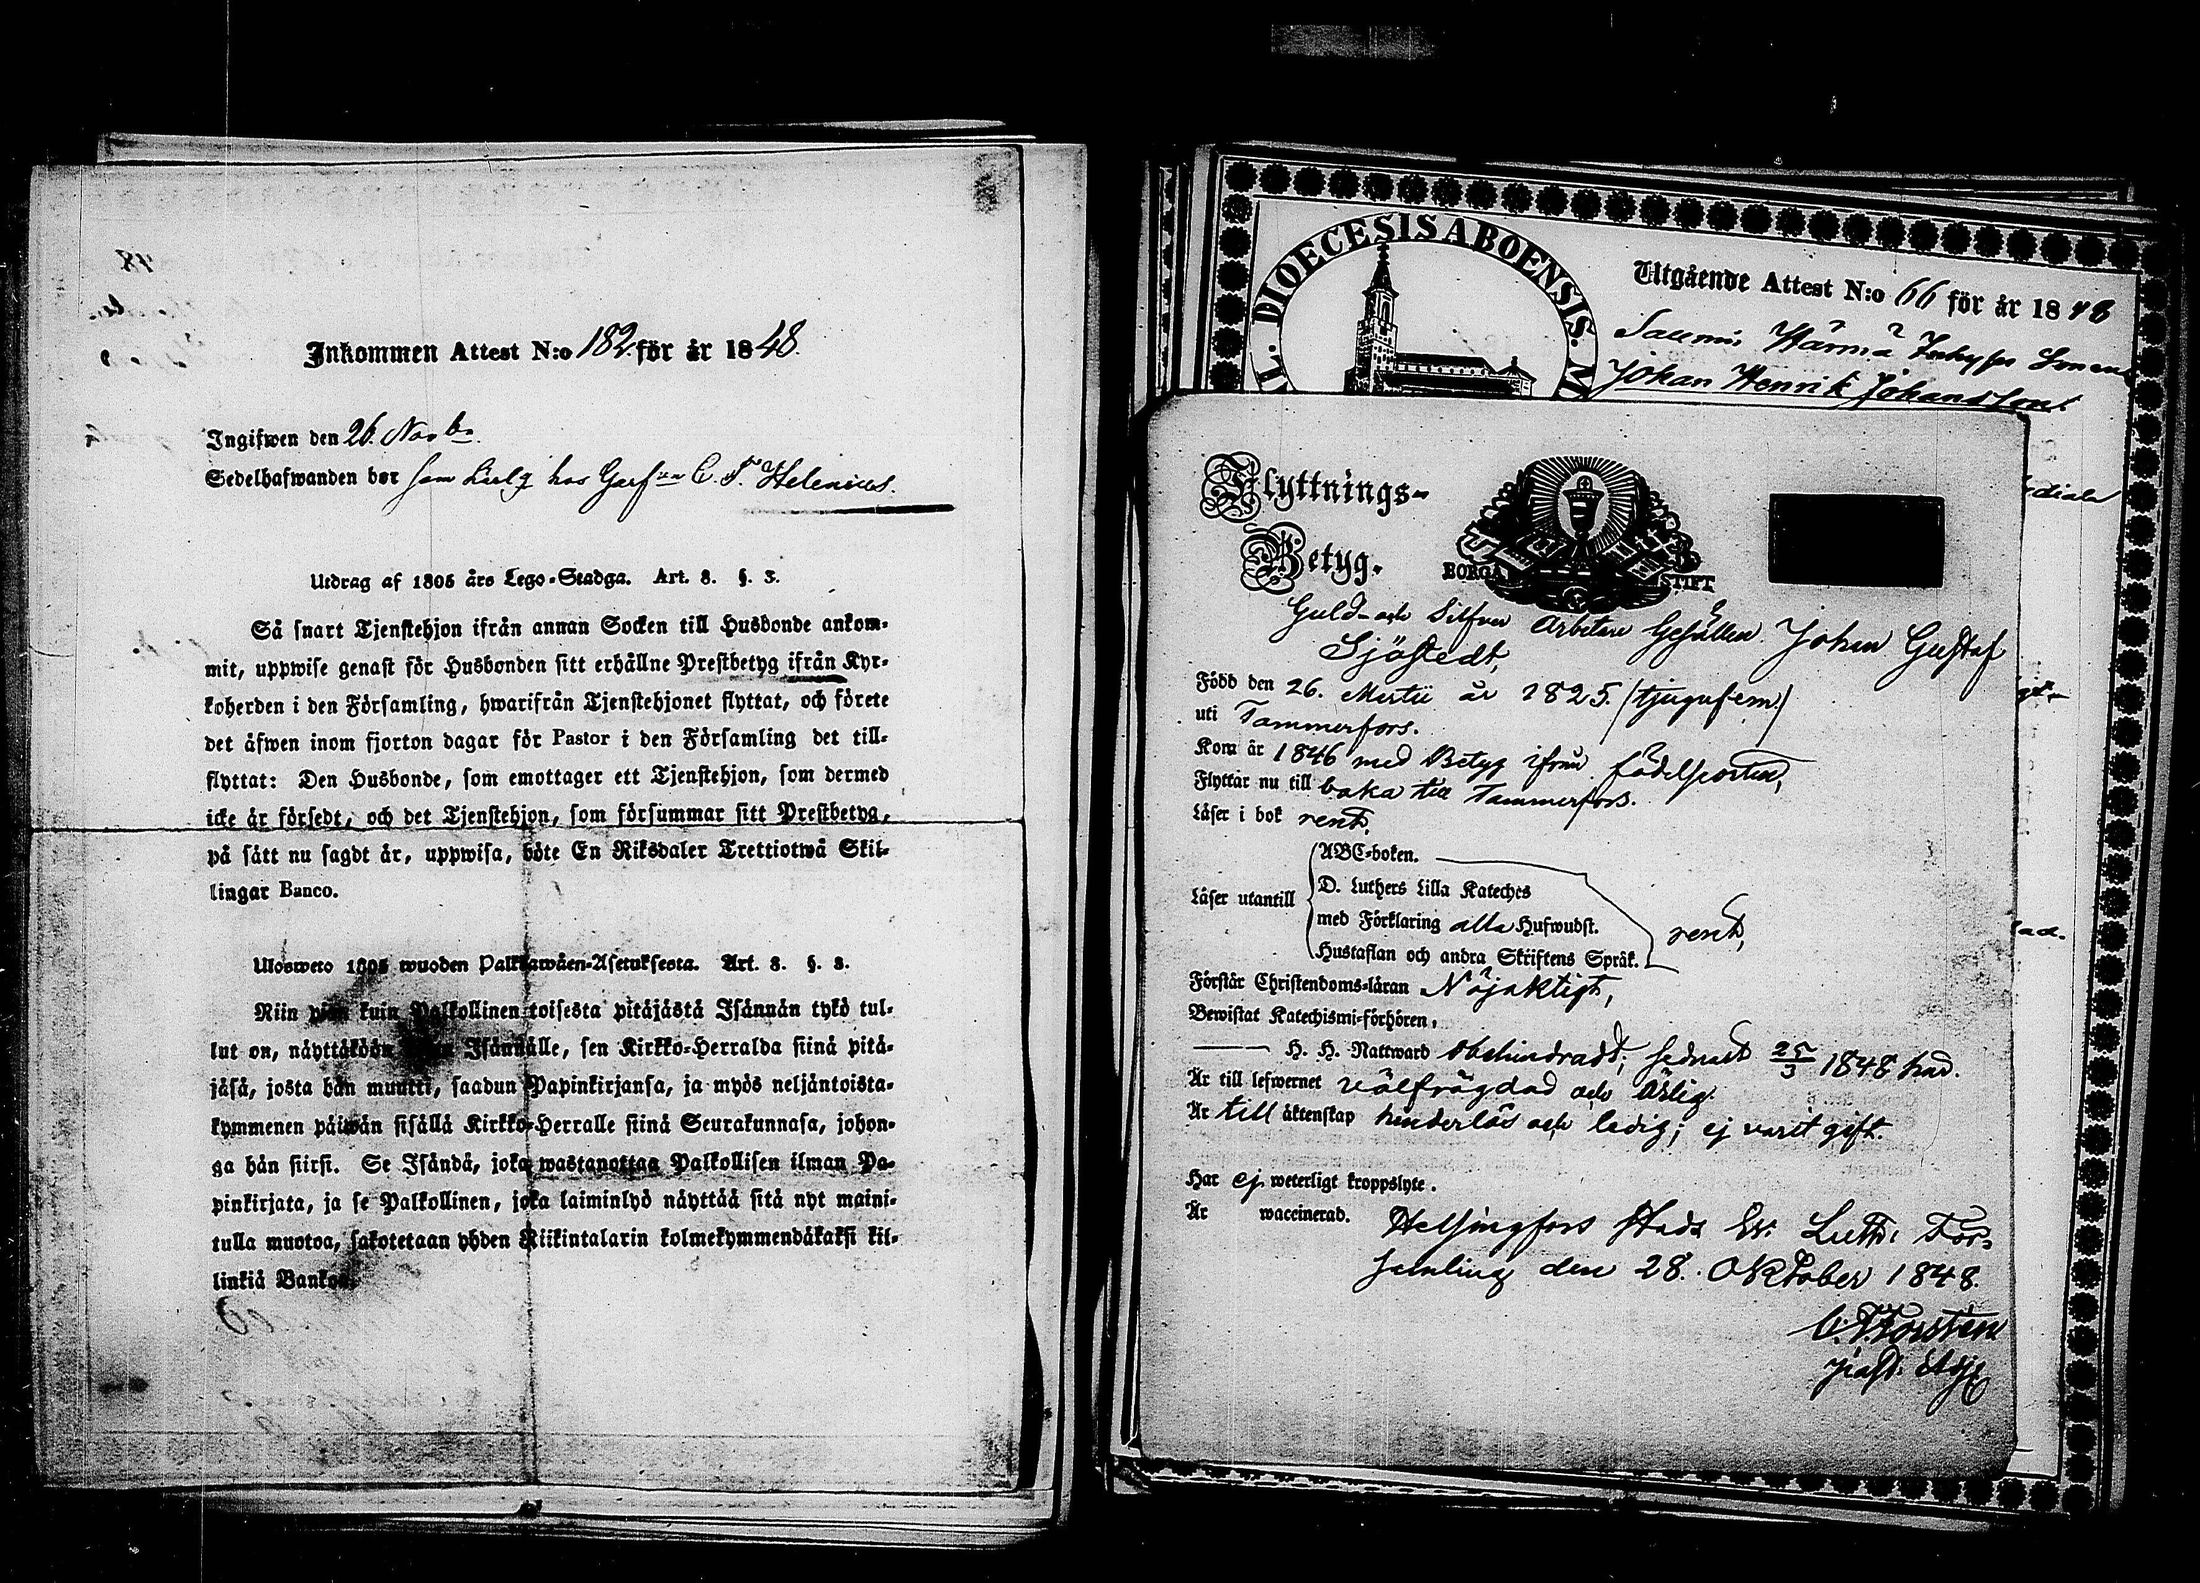 Inkommen Attest N:o 182. för år 1848.
Ingifwen den 26. Novbr
Sedelhafwanden bor som hos Garfven C. F. Helenius.
Utdrag af 1805 års Lego-Stadga. Art. 8. §. 3.
Så snart Tjenstehjon ifrån annan Socken till Husbonde ankom-
mit, uppwise genast för Husbonden sitt erhållne Prestbetyg ifrån Kyr-
koherden i den Församling, hwarifrån Tjenstehjonet flyttat, och förete
det äfwen inom fjorton dagar för Pastor i den Församling det till-
flyttat: Den Husbonde, som emottager ett Tjenstehjon, som dermed
icke är försedt, och det Tjenstehjon, som försummar sitt Prestbetyg,
på sätt nu sagdt är, uppwisa, böte En Riksdaler Trettiotwå Skil-
lingar Banco.
Ulosweto 1805 wuoden Palkkawäen-Asetuksesta. Art. 8. §. 3.
Niin pian kuin Palkollinen toisesta pitäjästä Isännän tykö tul-
lut on, näyttäköön Isännälle, sen Kirkko-Herralda siinä pitä-
jäsä, josta hän muutti, saadun Papinkirjansa, ja myös neljäntoista-
kymmenen päiwän sisällä Kirkko-Herralle siinä Seurakunnasa, johon-
ga hän siirsi. Se Isändä, joka wastanottaa Palkollisen ilman Pa-
pinkirjata, ja se Palkollinen, joka laiminlyö näyttää sitä nyt maini-
tulla muotoa, sakotetaan yhden Riikintalarin kolmekymmendäkaksi kil-
linkiä Bankos.
DIOECESIS ABOENSIS. M
Utgående Attest N:o 66 för år 1848
Johan Henrik Johansson
Flyttnings-
Betyg.
BORGÅ STIFT
Guld- och Silfver Arbetare Gesällen Johan Gustaf
Sjöstedt,
Född den 26. Martii år 1825. (tjugufem.)
uti Tammerfors.
Kom år 1846 med Betyg ifrån födelseorten,
Flyttar nu till baka till Tammerfors.
Läser i bok rent,
ABC-boken.
Läser utantill D. Luthers Lilla Kateches
med Förklaring alla Hufwudst. rent,
Hustaflan och andra Skriftens Språk.
Förstår Christendoms-läran Nöjaktigt,
Bewistat Katechismi-förhören,
— H. H. Nattward obehindradt; sednast 25/3 1848 här.
Är till lefwernet välfrägdad och ärlig.
Är till äktenskap hinderlös och ledig; ej varit gift.
Har ej weterligt kroppslyte.
Är waccinerad.
Helsingfors Stads Ev. Luth. För-
samling den 28. Oktober 1848.